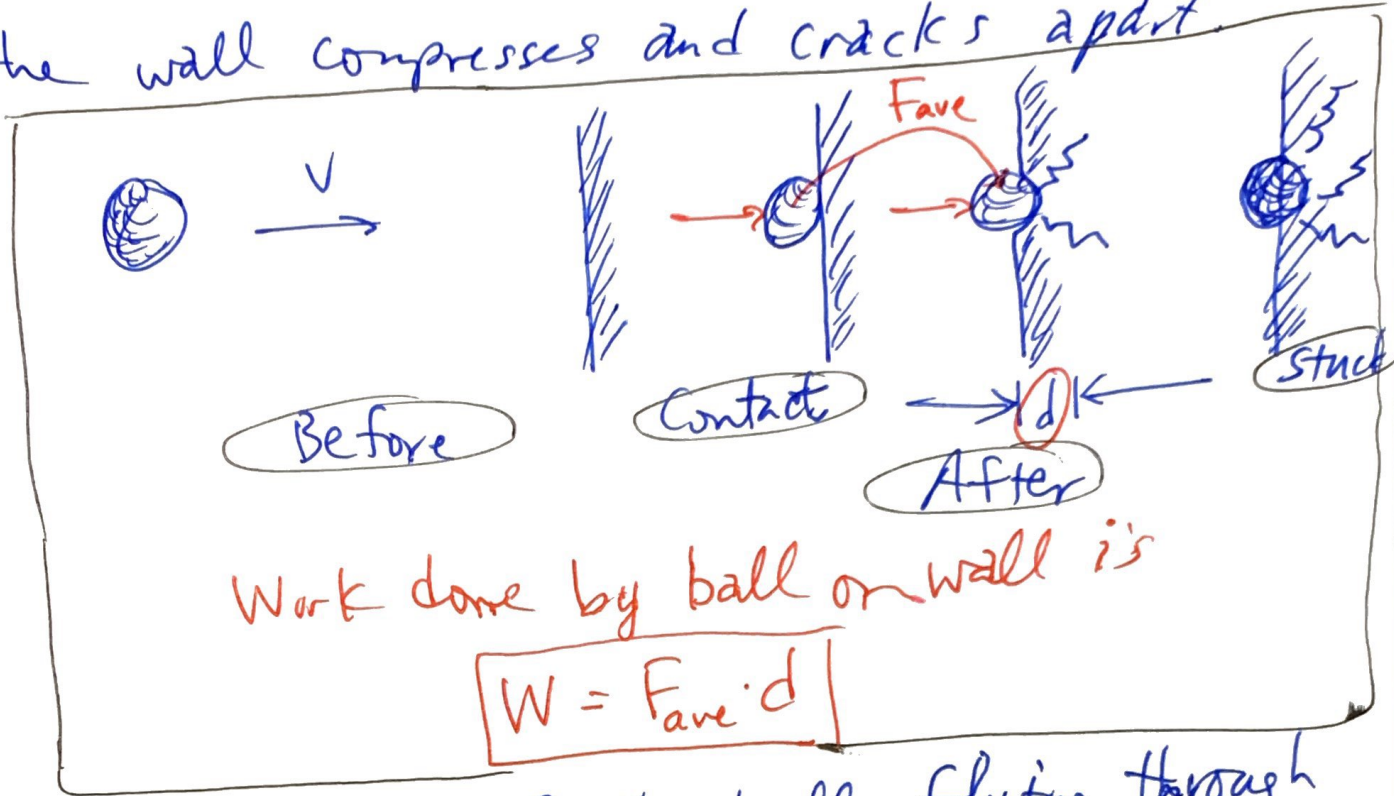 the wall compresses and cracks apart.
Fave
V
Stuck
Contact
d
Before
After
Work done by ball on wall is
W = Fave · d
flying through